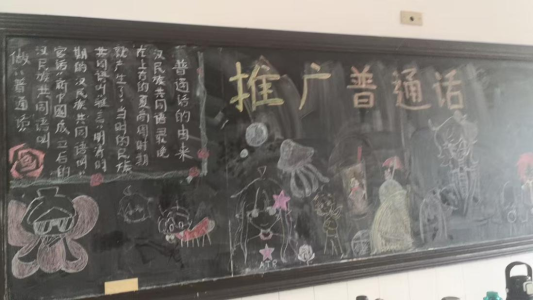 推广普通话
普通话的由来
汉民族共同语最晚
在上古的夏商周时期
就产生了，当时的民族
共同语叫雅言，明清时
期的汉民族共同语叫
官话，新中国成立后的
汉民族共同语叫
做“普通话